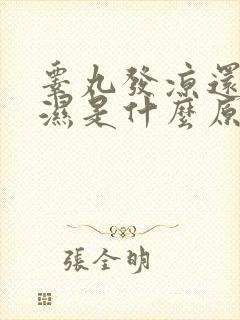 睪丸發涼還
濕是什麼原
張全明